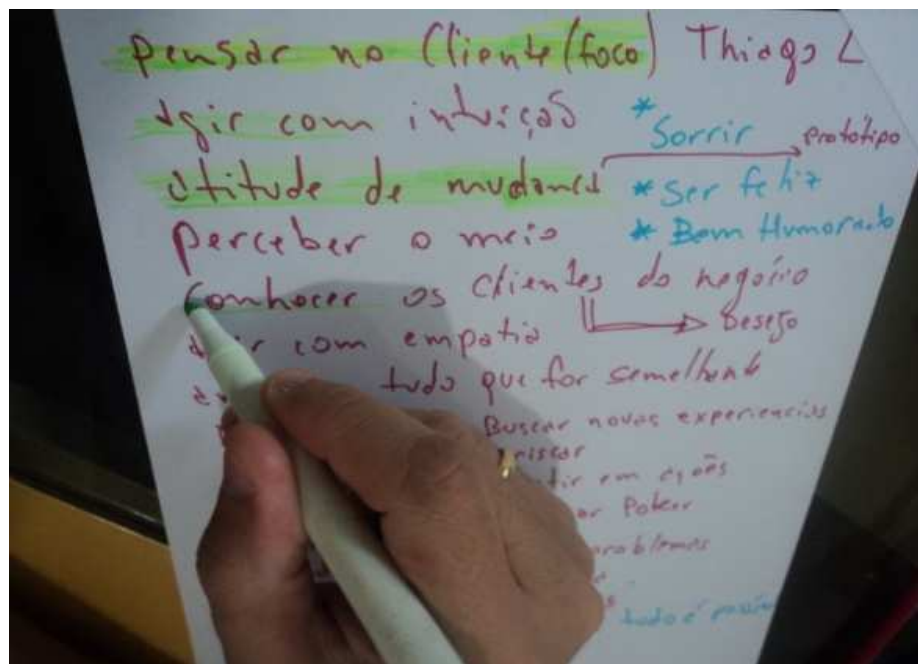 Pensar no Cliente (foco) Thiago L
Agir com intuição * Sorrir
Protótipo
Atitude de mudança * Ser feliz
Perceber o meio * Bem Humorado
Conhecer os clientes do negócio
Desejo
com empatia
tudo que for semelhante
Buscar novas experiencias
em ações
problemas
tudo é